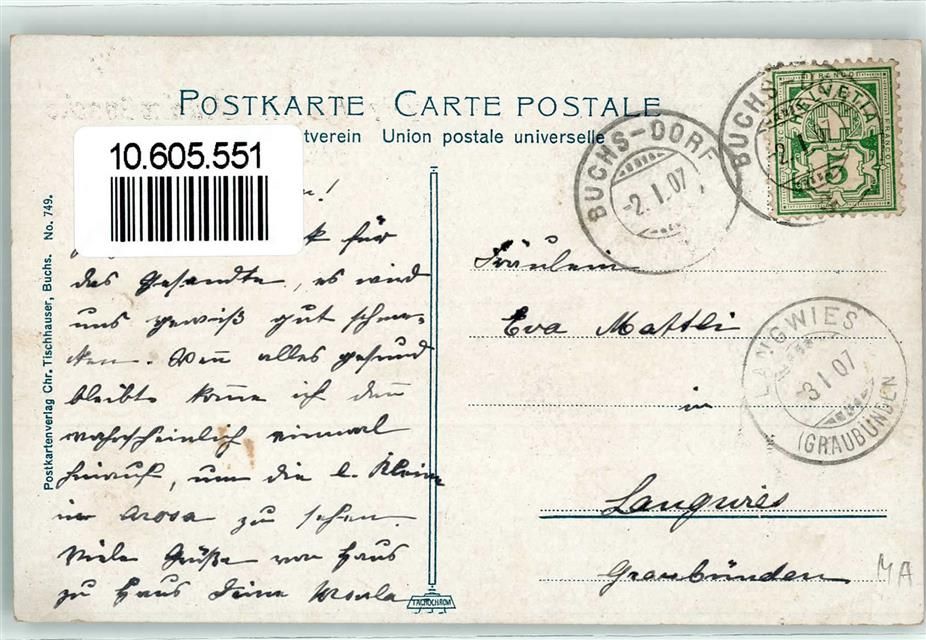 POSTKARTE CARTE POSTALE
tverein Union postale universelle
10.605.551
Postkartenverlag Chr. Tischhauser, Buchs. No. 749.
BUCHS-DORF
-2.I.07
BUCHS-D
-2.I.07
FRANCO
HELVETIA
FRANCO
5
LANGWIES
-3.I.07
(GRAUBÜNDEN)
n!
k für
das Gesandte, es wird
uns gewiß gut schme-
cken. Wenn alles gesund
bleibt komme ich dann
wahrscheinlich einmal
hinauf, um die l. Kleine
in Arosa zu sehen.
Viele Grüße von Haus
zu Haus Deine
Fräulein
Eva Mattli
in
Langwies
Graubünden
MA
TACHOCHROM